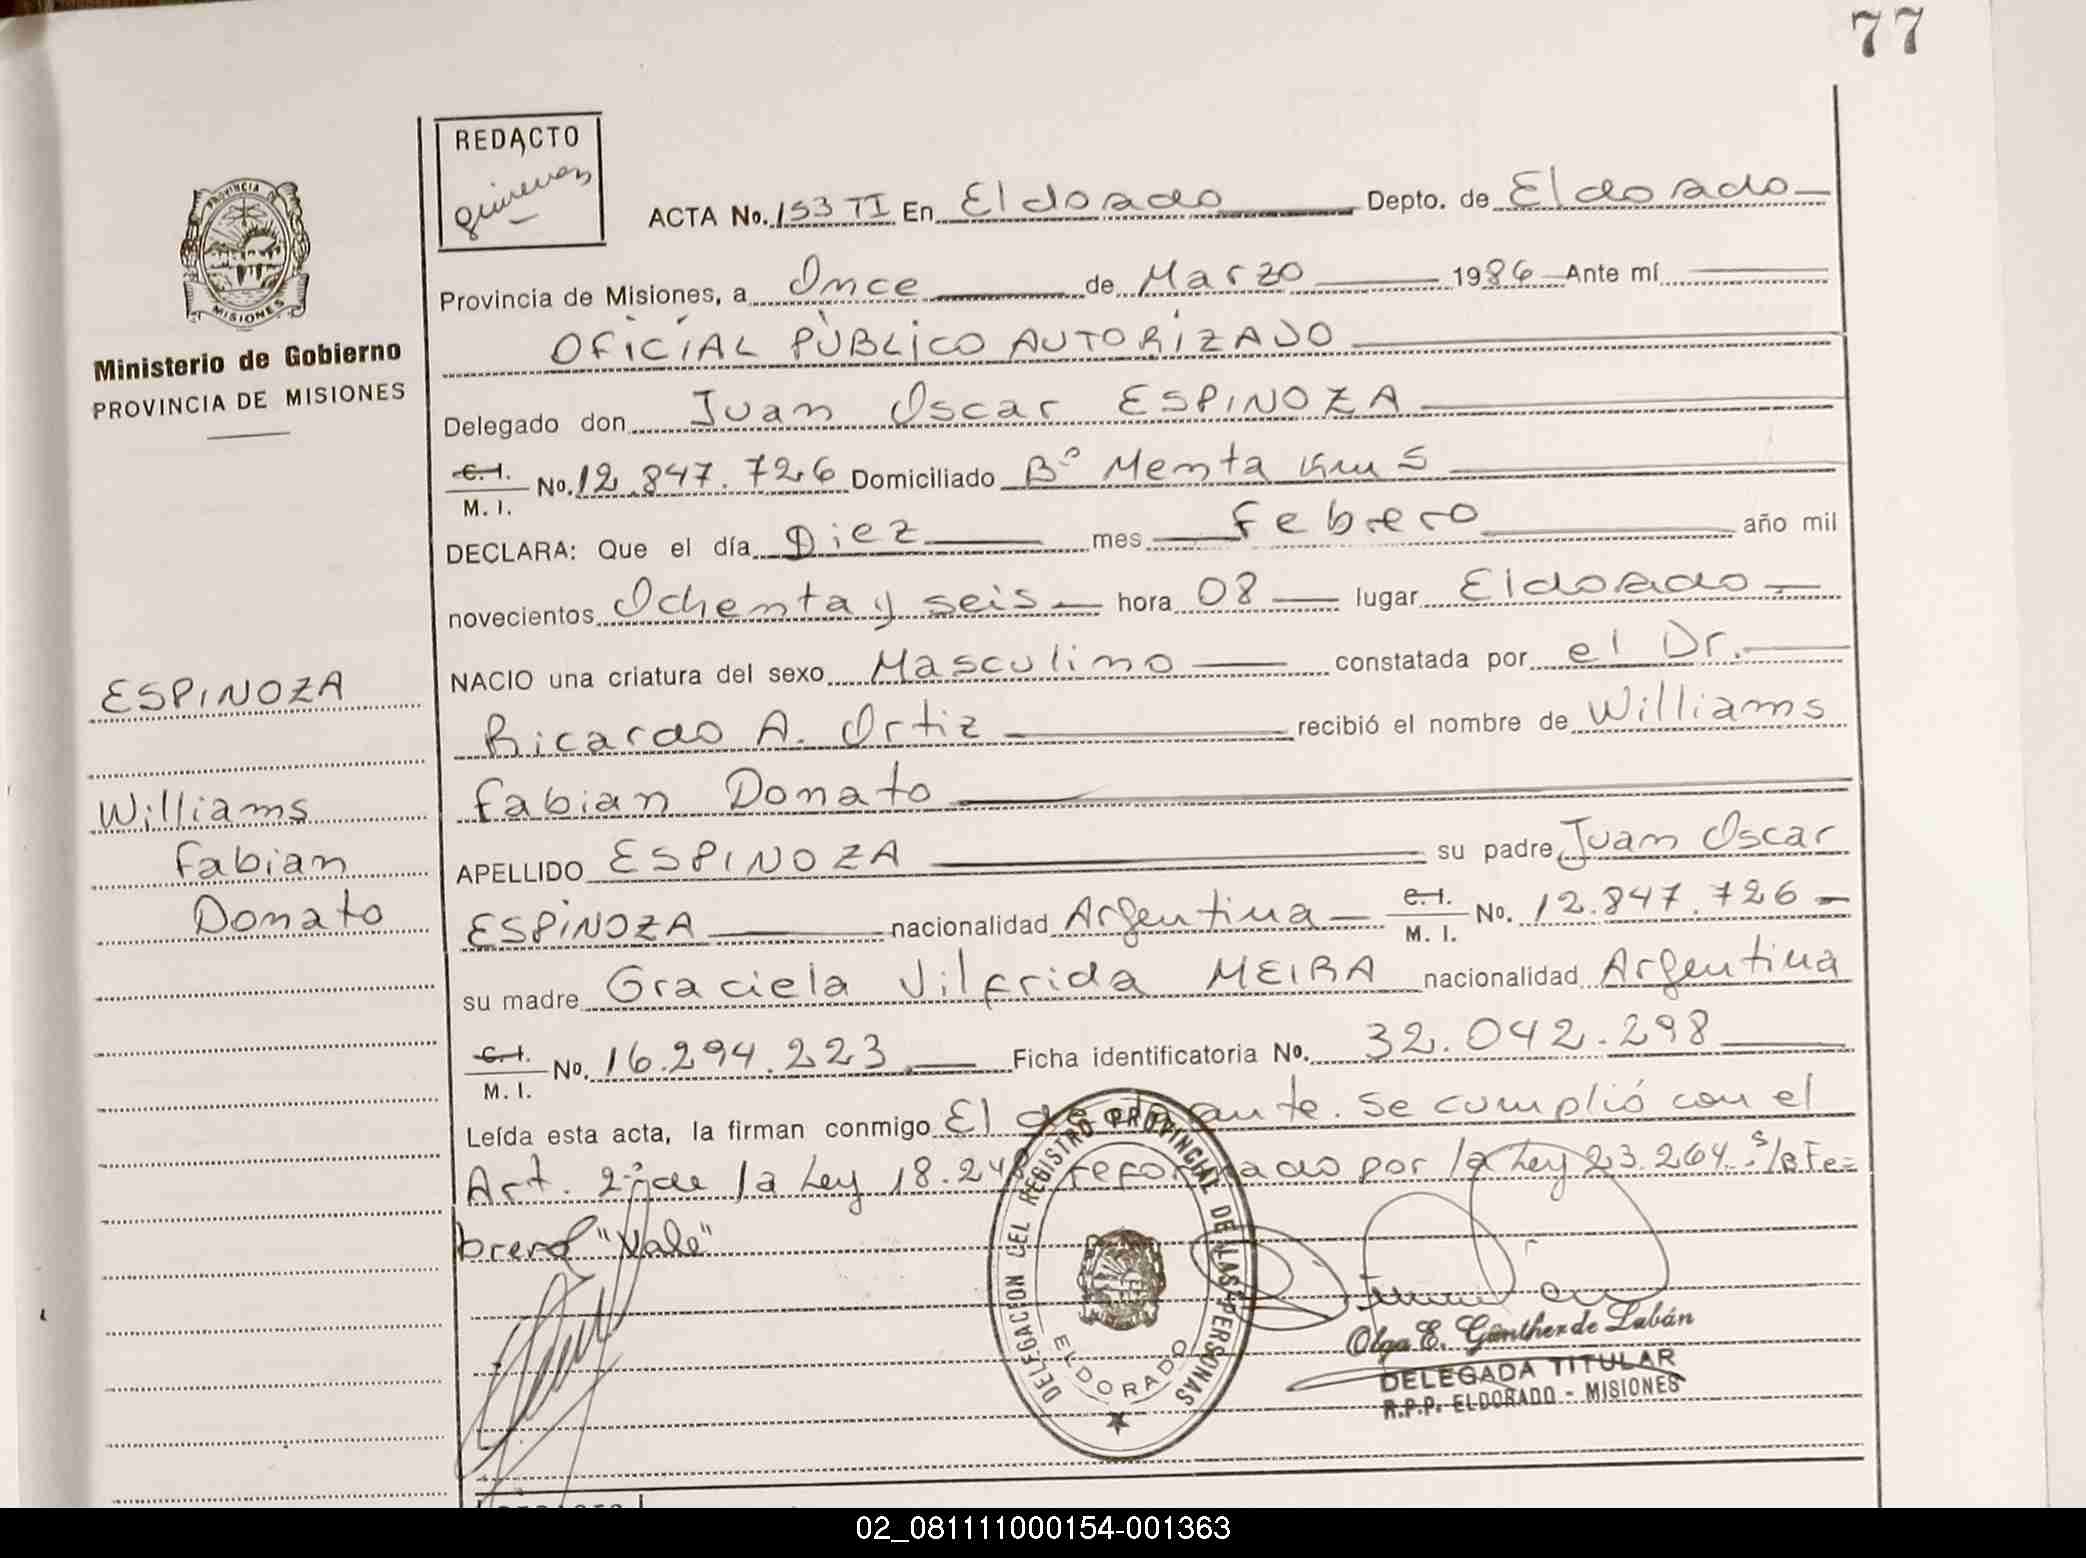 77
REDACTO
PROVINCIA DE MISIONES
Ministerio de Gobierno
PROVINCIA DE MISIONES
ACTA No. 153 TI En Eldorado Depto. de Eldorado
Provincia de Misiones, a Once de Marzo 1986 Ante mí
OFICIAL PÚBLICO AUTORIZADO
Delegado don Juan Oscar ESPINOZA
C.I. M. I. No. 12.847.726 Domiciliado Bº Menta Km 5
DECLARA: Que el día Diez mes Febrero año mil
novecientos Ochenta y seis hora 08 lugar Eldorado
NACIO una criatura del sexo Masculino constatada por el Dr.
Ricardo A. Ortiz recibió el nombre de Williams
Fabian Donato
APELLIDO ESPINOZA su padre Juan Oscar
ESPINOZA nacionalidad Argentina C.I. M. I. No. 12.847.726
su madre Graciela Vilfrida MEIRA nacionalidad Argentina
C.I. M. I. No. 16.294.223 Ficha identificatoria No. 32.042.298
Leída esta acta, la firman conmigo El declarante. Se cumplió con el
Art. 2º de la Ley 18.248 reformado por la Ley 23.264. S/R Fe=
brero "Vale"
ESPINOZA
Williams
Fabian
Donato
DELEGACION DEL REGISTRO PROVINCIAL DE LAS PERSONAS
ELDORADO
Olga E. Günther de Labán
DELEGADA TITULAR
R.P.P. ELDORADO - MISIONES
02_081111000154-001363